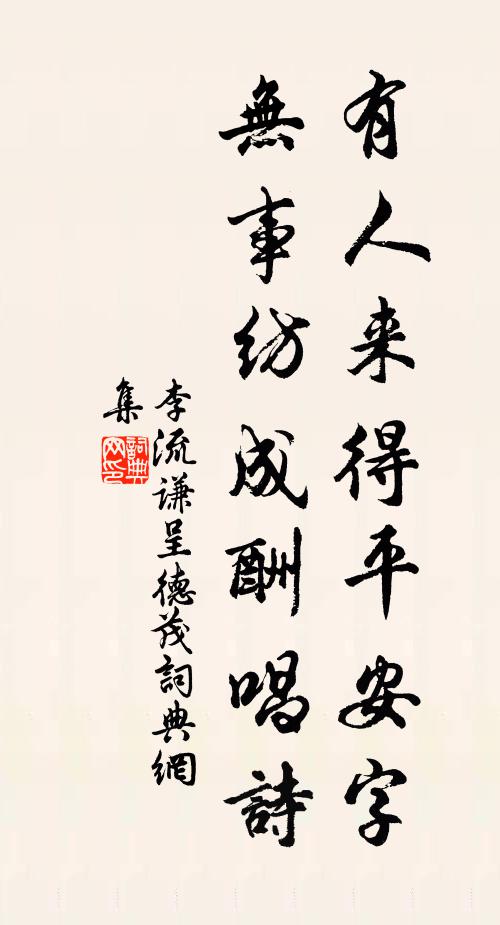 有人来得平安字
無事紡成酬唱詩
李流謙呈德茂詞典網
集
詞典
网印